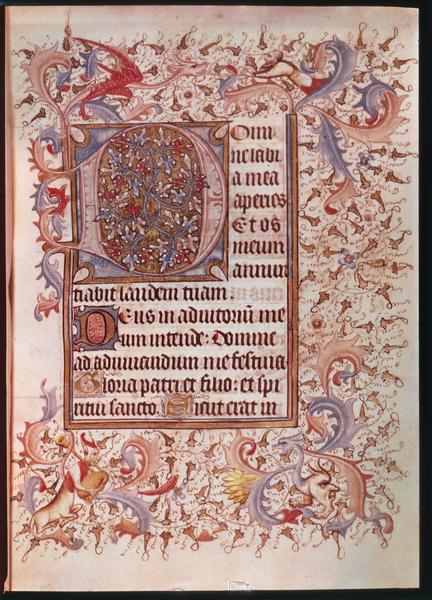 Domi
ne labi
a mea
aperies
Et os
meum
annun
tiabit laudem tuam.
Deus in adiutoriū me
um intende: Domine
ad adiuuandum me festina
Gloria patri et filio: et spi
ritui sancto. Sicut erat in